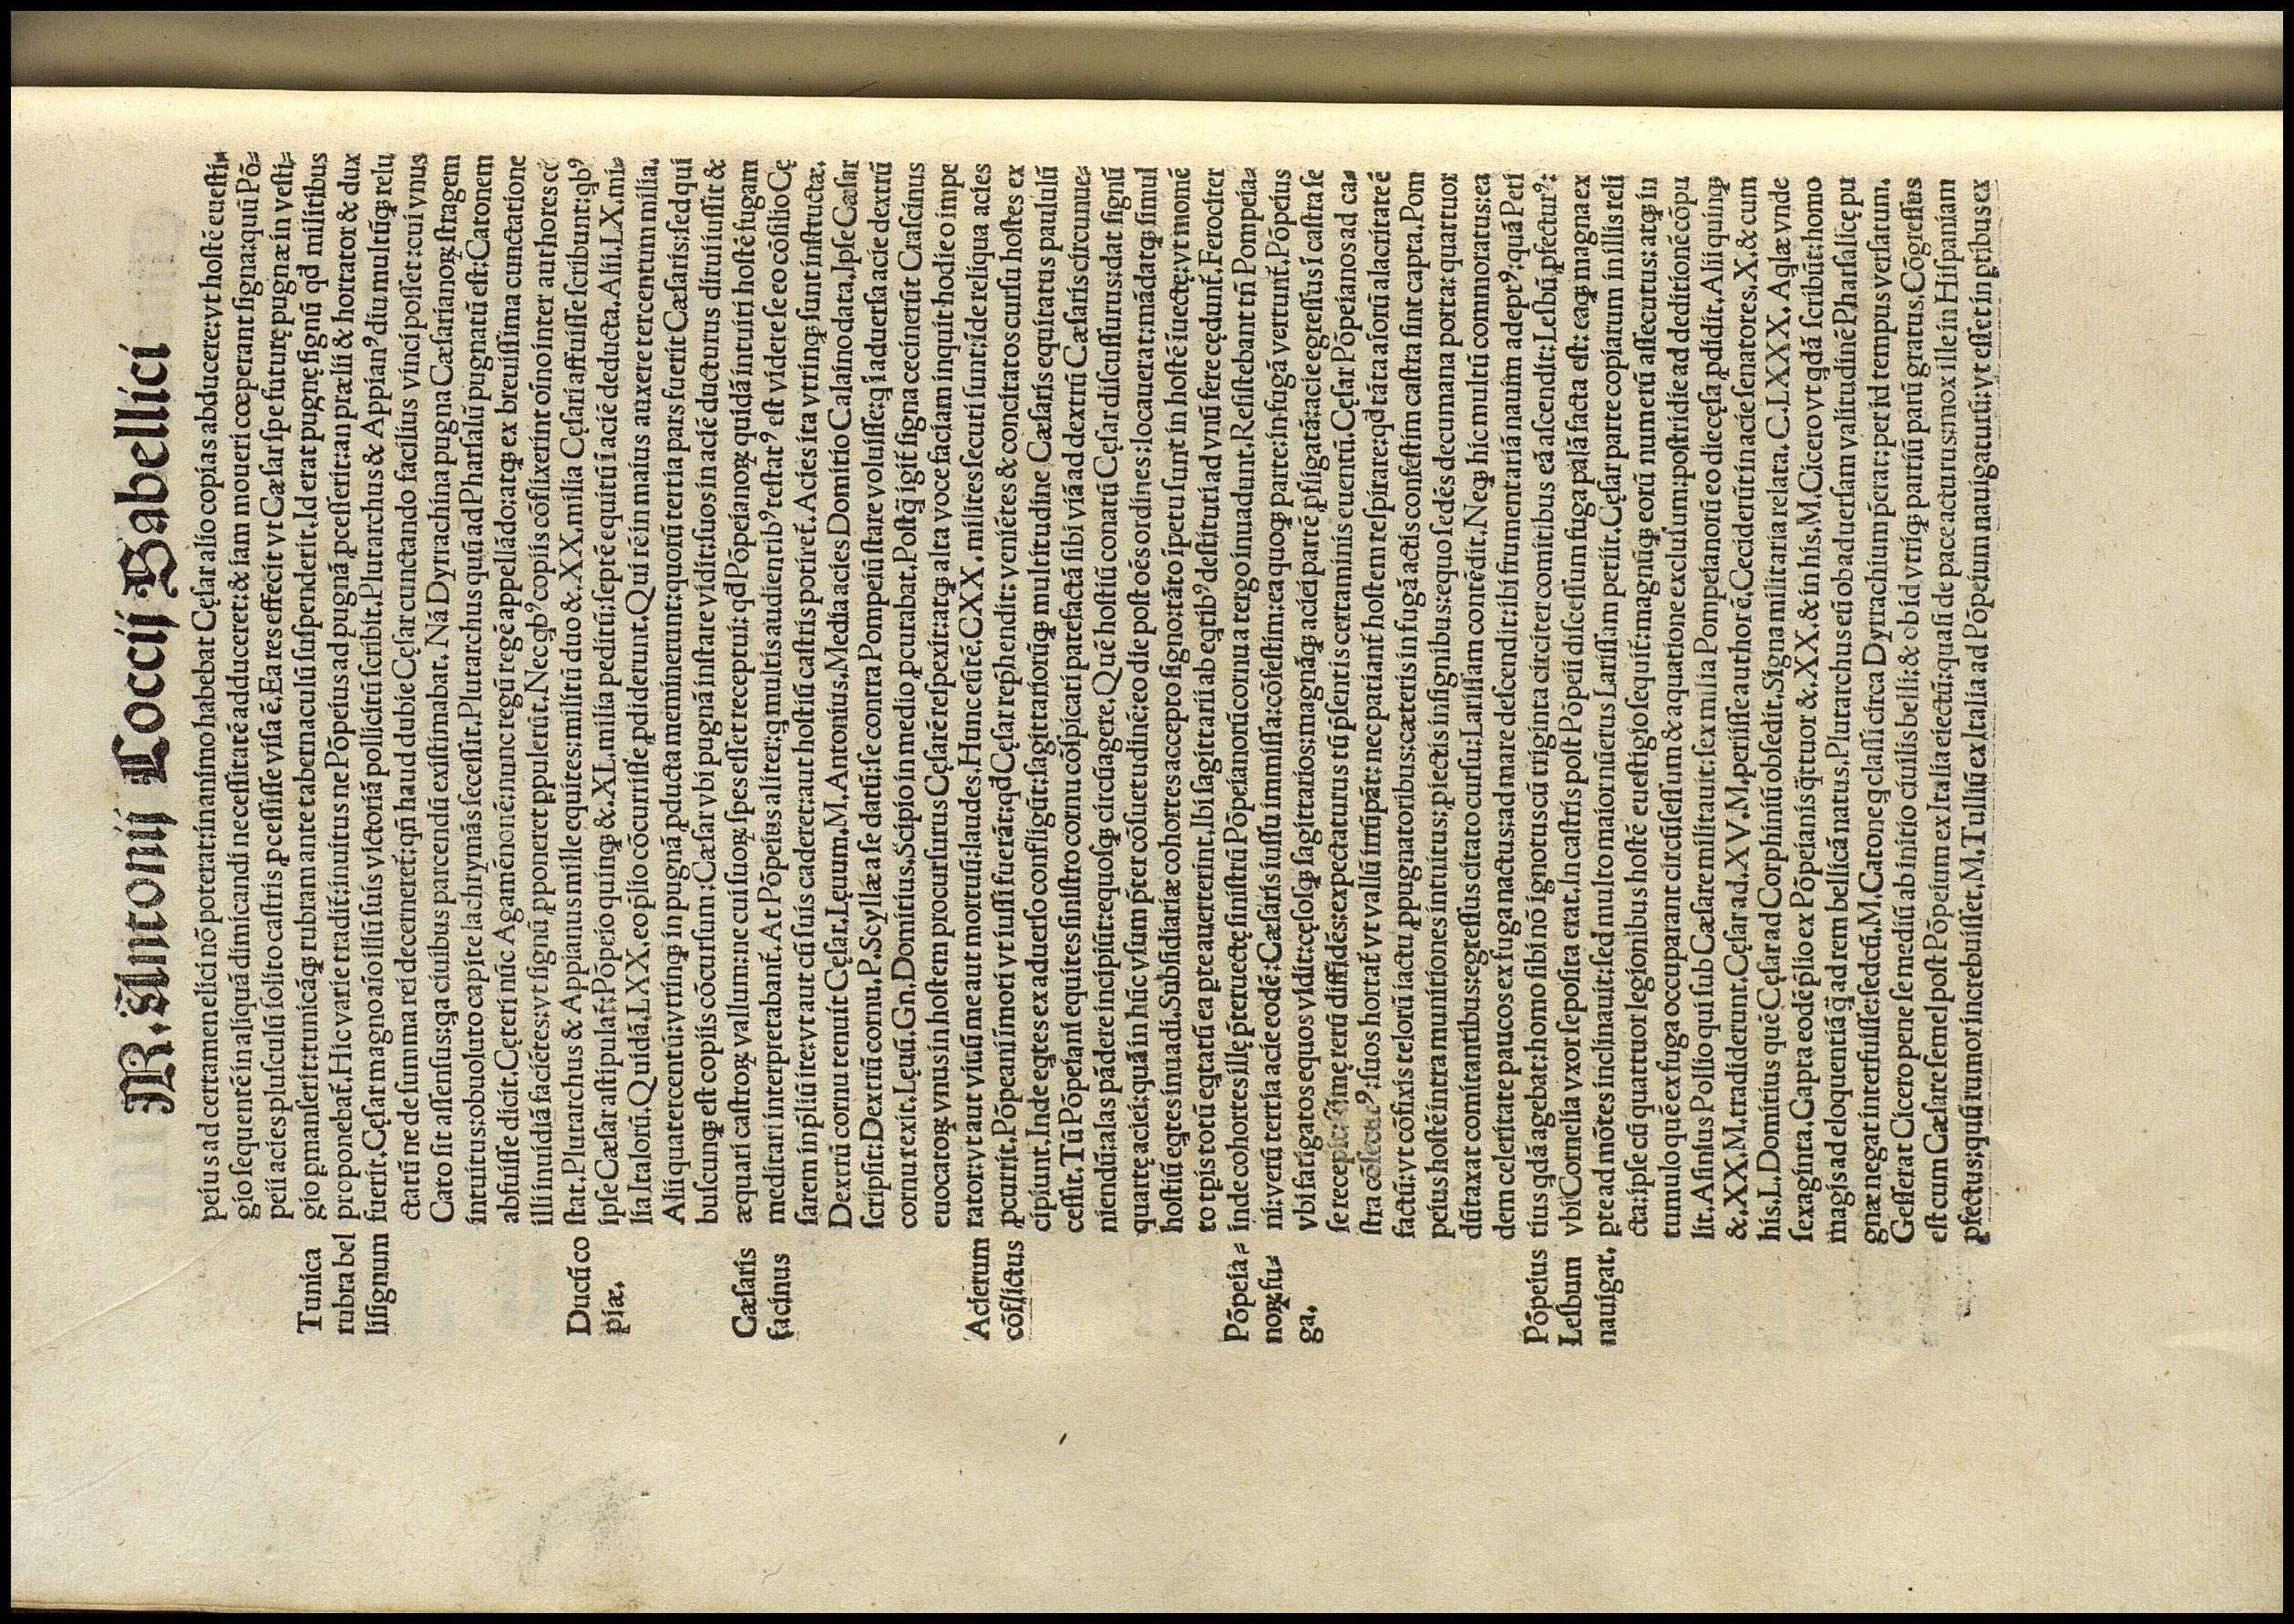 M. Antonij Coccij Sabellici
peius ad certamen elici nō poterat: in animo habebat Cęſar alio copias abducere: vt hoſtē eueſti⸗
gio ſequentē in aliquā dimicandi neceſſitatē adduceret: & iam moueri cœperant ſigna: quū Pō⸗
peii acies pluſculū ſolito caſtris ꝓceſſiſſe viſa ē. Ea res effecit vt Cæſar ſpe futurę pugnæ in veſti⸗
gio ꝑmanſerit: tunicāqꝫ rubram ante tabernaculū ſuſpenderit. Id erat pugnę ſignū qd̄ militibus
proponebat̄. Hic varie tradit̄: inuitus ne Pōpeius ad pugnā ꝓceſſerit: an prælii & hortator & dux
fuerit. Cęſar magno aīo illū ſuis victoriā pollicitū ſcribit. Plutarchus & Appianꝰ diu multūqꝫ relu
ctatū ne de ſumma rei decerneret̄: qn̄ haud dubie Cęſar cunctando facilius vinci poſſet: cui vnus
Cato ſit aſſenſus: ꝗa ciuibus parcendū exiſtimabat. Nā Dyrrachina pugna Cæſarianoꝝ ſtragem
intuitus: obuoluto capite lachrymās ſeceſſit. Plutarchus quū ad Pharſalū pugnatū eſt: Catonem
abfuiſſe dicit. Cęteri nūc Agamēnonē: nunc regū regē appellādo: atqꝫ ex breuiſſima cunctatione
illi inuidiā faciētes: vt ſignū ꝓponeret ꝑpulerūt. Nec ꝗbꝰ copiis cōflixerint oīno inter authores cō
ſtat. Plutarchus & Appianus mille equites: militū duo &. XX. milia Cęſari affuiſſe ſcribunt: ꝗbꝰ
ipſe Cæſar aſtipulat̄: Pōpeio quinqꝫ &. XL. milia peditū: ſeptē equitū ī aciē deducta. Alii. LX. mi⸗
lia Italorū. Quidā. LXX. eo p̄lio cōcurriſſe ꝓdiderunt. Qui rē in maius auxere tercentum milia.
Alii quatercentū: vtrinqꝫ in pugnā ꝓducta meminerunt: quorū tertia pars fuerit Cæſaris: ſed qui
buſcunqꝫ eſt copiis cōcurſum: Cæſar vbi pugnā inſtare vidit: ſuos in aciē ducturus dirui iuſſit &
æquari caſtroꝝ vallum: ne cui ſuoꝝ ſpes eſſet receptui: qd̄ Pōpeianoꝝ quidā intuiti hoſtē fugam
meditari interpretabant̄. At Pōpeius aliter: ꝗ multis audientibꝰ teſtatꝰ eſt videre ſe eo cōſilio Cę
ſarem in p̄liū ire: vt aut cū ſuis caderet: aut hoſtiū caſtris potiret̄. Acies ita vtrinqꝫ ſunt inſtructæ.
Dextrū cornu tenuit Cęſar. Lęuum. M. Antonius. Media acies Domitio Calaino data. Ipſe Cæſar
ſcripſit: Dextrū cornu. P. Scyllæ a ſe datū: ſe contra Pompeiū ſtare voluiſſe: ꝗ ī aduerſa acie dextrū
cornu rexit. Lęuū. Gn. Domitius. Scipio in medio ꝓcurabat. Poſtq̄ igit̄ ſigna cecinerūt Craſcinus
euocatoꝝ vnus in hoſtem procurſurus Cęſarē reſpexit: atqꝫ alta voce faciam inquit hodie o impe
rator: vt aut viuū me aut mortuū: laudes. Hunc eūtē. CXX. milites ſecuti ſunt: īde reliqua acies
ꝓcurrit. Pōpeani īmoti vt iuſſi fuerāt: qd̄ Cęſar rep̄hendit: veniētes & concitatos curſu hoſtes ex
cipiunt. Inde eqtes ex aduerſo confligūt: ſagittariorūqꝫ multitudine Cæſaris equitatus paululū
ceſſit. Tū Pōpeiani equites ſiniſtro cornu cōſpicati patefactā ſibi viā ad dextrū Cæſaris circunue⸗
niendū: alas pādere incipiūt: equoſqꝫ circūagere. Quē hoſtiū conatū Cęſar diſcuſſurus: dat ſignū
quartę aciei: quā in hūc vſum p̄ter cōſuetudinē: eo die poſt oēs ordines: locauerat: mādatqꝫ ſimul
hoſtiū eqtes inuadi. Subſidiariæ cohortes accepto ſigno: tāto īpetu ſunt in hoſtē iuectę: vt momē
to tꝑis totū eqtatū ea ꝑte auerterint. Ibi ſagittarii ab eqtibꝰ deſtituti ad vnū fere cędunt̄. Ferociter
inde cohortes illę p̄teruectę ſiniſtrū Pōpeianorū cornu a tergo inuadunt. Reſiſtebant tn̄ Pompeia⸗
ni: verū tertia acie eodē: Cæſaris iuſſu immiſſa: cōfeſtim: ea quoqꝫ parte: in fugā vertunt̄. Pōpeius
vbi fatigatos equos vidit: cęſoſqꝫ ſagittarios: magnāqꝫ aciei partē ꝓfligatā: acie egreſſus ī caſtra ſe
ſe recepit: ſūmę rerū diffidēs: expectaturus tū p̄ſentis certaminis euentū. Cęſar Pōpeianos ad ca⸗
ſtra cōſecutꝰ: ſuos hortat̄ vt vallū irrūpāt: nec patiant̄ hoſtem reſpirare: qd̄ tāta aīorū alacritate ē
factū: vt cōfixis telorū iactu ꝓpugnatoribus: cæteris in fugā actis confeſtim caſtra ſint capta. Pom
peius hoſtē intra munitiones intuitus: ꝓiectis inſignibus: equo ſedēs decumana porta: quattuor
dūtaxat comitantibus: egreſſus citato curſu: Lariſſam contēdit. Neqꝫ hic multū commoratus: ea
dem celeritate paucos ex fuga nactus: ad mare deſcendit: ibi frumentariā nauim adeptꝰ: quā Peti
tius qdā agebat: homo ſibi nō ignotus cū triginta circiter comitibus eā aſcendit: Leſbū ꝓfecturꝰ:
vbi Cornelia vxor ſepoſita erat. In caſtris poſt Pōpeii diſceſſum fuga palā facta eſt: eaqꝫ magna ex
ꝑte ad mōtes inclinauit: ſed multo maior nūerus Lariſſam periit. Cęſar parte copiarum in illis reli
cta: ipſe cū quattuor legionibus hoſtē eueſtigio ſequit̄: magnūqꝫ eorū numerū aſſecutus: atqꝫ in
tumulo quē ex fuga occuparant circūſeſſum & aquatione excluſum: poſtridie ad deditionē cōpu
lit. Aſinius Pollio qui ſub Cæſare militauit: ſex milia Pompeianorū eo die cęſa ꝓdidit. Alii quinqꝫ
&. XX. M. tradiderunt. Cęſar ad. XV. M. periiſſe author ē. Ceciderūt in acie ſenatores. X. & cum
his. L. Domitius quē Cęſar ad Corphiniū obſedit. Signa militaria relata. C. LXXX. Aqlæ vnde
ſexaginta. Capta eodē p̄lio ex Pōpeianis q̄ttuor &. XX. & in his. M. Cicero vt qdā ſcribūt: homo
magis ad eloquentiā q̄ ad rem bellicā natus. Plutarchus eū ob aduerſam valitudinē Pharſalicę pu
gnæ negat interfuiſſe: ſed cū. M. Catone ꝗ claſſi circa Dyrrachium p̄erat: per id tempus verſatum.
Geſſerat Cicero pene ſe mediū ab initio ciuilis belli: & ob id vtriqꝫ partiū parū gratus. Cōgreſſus
eſt cum Cæſare ſemel poſt Pōpeium ex Italia eiectū: quaſi de pace acturus: mox ille in Hiſpaniam
ꝓfectus: quū rumor increbuiſſet. M. Tulliū ex Italia ad Pōpeium nauigaturū: vt eſſet in ꝑtibus ex
Tunica
rubra bel
li ſignum
Ducū co
piæ.
Cæſaris
facinus
Acierum
cōflictus
Pōpeia⸗
noꝝ fu⸗
ga.
Pōpeius
Leſbum
nauigat.